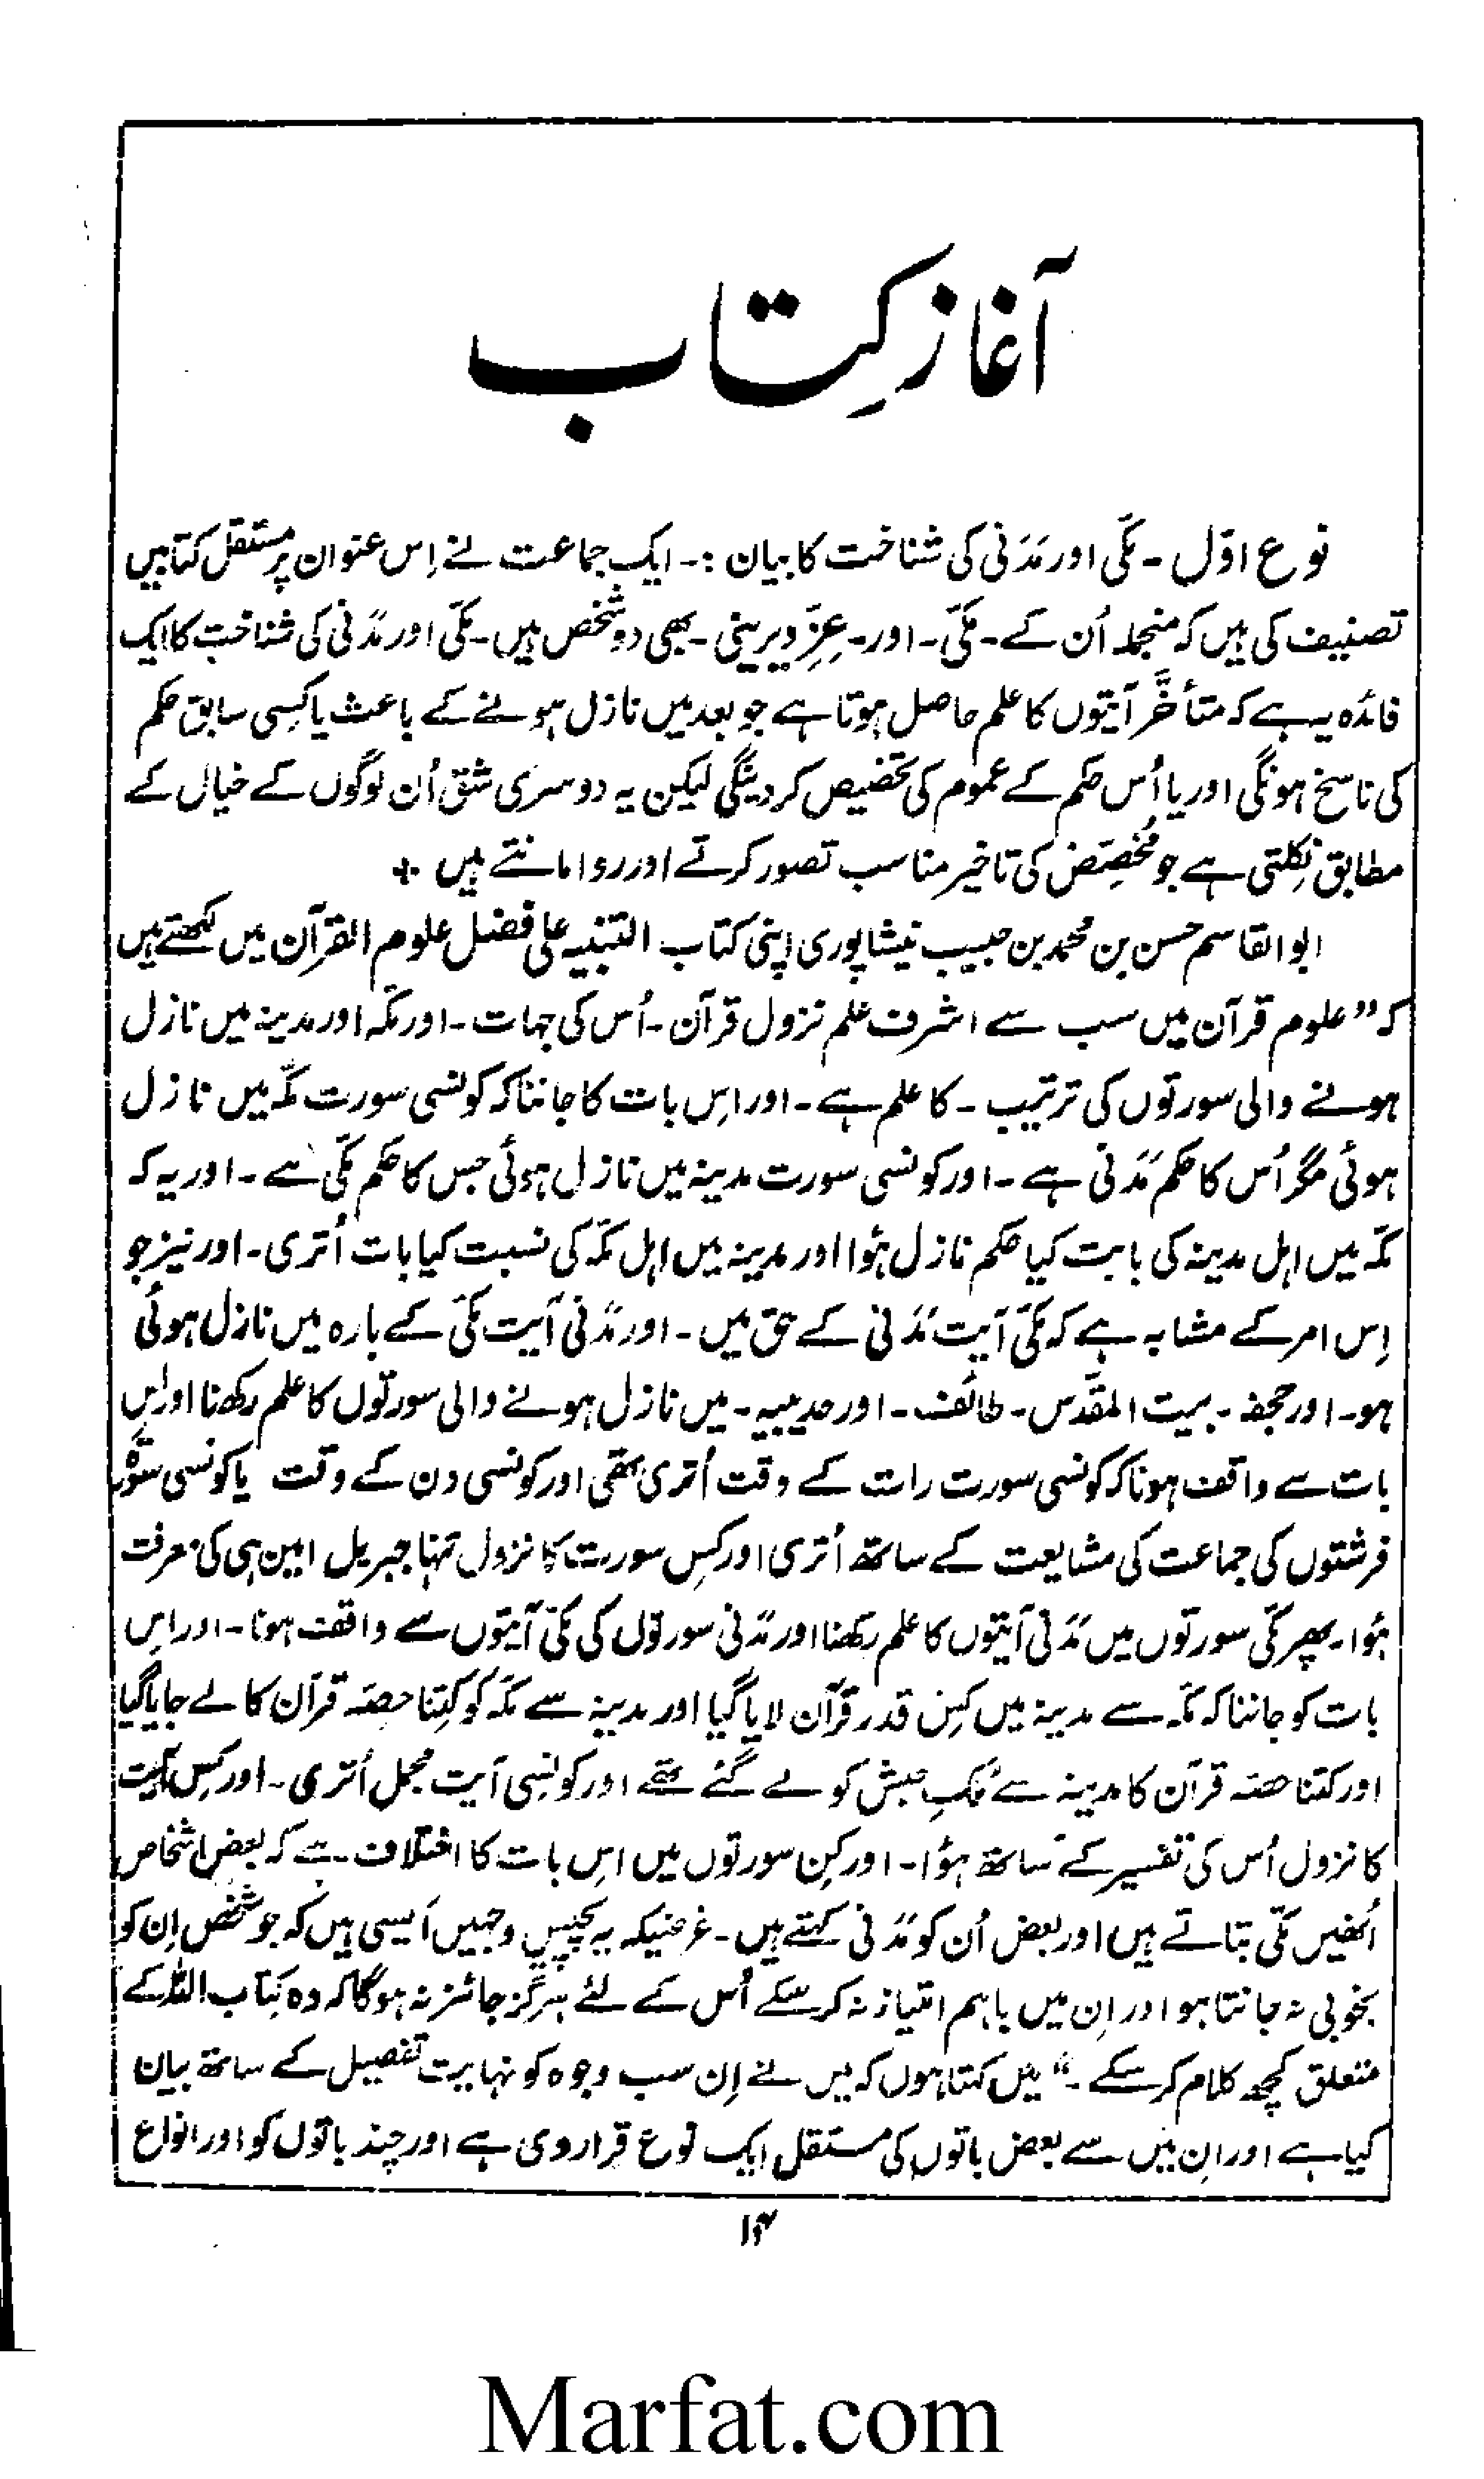 آغازِ کتاب
نوع اوّل ۔ مکّی اور مَدَنی کی شناخت کا بیان :۔ ایک جماعت نے اِس عنوان پر مستقل کتابیں
تصنیف کی ہیں کہ منجملہ اُن کے ۔ مکّی ۔ اور ۔ عِزِّ دیرینی ۔ بھی دو شخص ہیں ۔ مکّی اور مدَنی کی شناخت کا ایک
فائدہ یہ ہے کہ متأخَّر آیتوں کا علم حاصل ہوتا ہے جو بعد میں نازل ہونے کے باعث یا کسِی سابق حکم
کی ناسخ ہونگی اور یا اُس حکم کے عموم کی تخصیص کر دینگی لیکن یہ دوسری شق اُن لوگوں کے خیال کے
مطابق نِکلتی ہے جو مُخصِّص کی تاخیر مناسب تصور کرتے اور روا مانتے ہیں +
ابوالقاسم حسن بن محمد بن حبیب نیشاپوری اپنی کتاب التنبیہ علی فضل علوم القرآن میں لکھتے ہیں
کہ "علوم قرآن میں سب سے اشرف علم نزول قرآن ۔ اُس کی جہات ۔ اور مکّہ اور مدینہ میں نازل
ہونے والی سورتوں کی ترتیب ۔ کا علم ہے ۔ اور اِس بات کا جاننا کہ کونسی سورت مکّہ میں نازل
ہوئی مگر اُس کا حکم مَدَنی ہے ۔ اور کونسی سورت مدینہ میں نازل ہوئی جس کا حکم مکّی ہے ۔ اور یہ کہ
مکّہ میں اہل مدینہ کی بابت کیا حکم نازل ہؤا اور مدینہ میں اہل مکّہ کی نسبت کیا بات اُتری ۔ اور نیز جو
اِس امر کے مشابہ ہے کہ مکّی آیت مَدَنی کے حق میں ۔ اور مدَنی آیت مکّی کے بارہ میں نازل ہوئی
ہو ۔ اور جحفہ ۔ بیت المقدَّس ۔ طائف ۔ اور حدیبیہ ۔ میں نازل ہونے والی سورتوں کا علم رکھنا اور اِس
بات سے واقف ہونا کہ کونسی سورت رات کے وقت اُتری تھی اور کونسی دن کے وقت یا کونسی سورۃ
فرشتوں کی جماعت کی مشایعت کے ساتھ اُتری اور کسِ سورت کا نزول تنہا جبریل امین ہی کی معرفت
ہؤا ۔ پھر مکّی سورتوں میں مَدَنی آیتوں کا علم رکھنا اور مدَنی سورتوں کی مکّی آیتوں سے واقف ہونا ۔ اور اِس
بات کو جاننا کہ مکّہ سے مدینہ میں کِس قدر قرآن لایا گیا اور مدینہ سے مکّہ کو کِتنا حصّہ قرآن کا لے جایا گیا
اور کتنا حصّہ قرآن کا مدینہ سے مُلکِ حبش کو لے گئے تھے اور کونسی آیت مجمل اُتری ۔ اور کسِ آیت
کا نزول اُس کی تفسیر کے ساتھ ہؤا ۔ اور کنِ سورتوں میں اِس بات کا اختلاف ہے کہ بعض اشخاص
اُنھیں مکّی بتاتے ہیں اور بعض اُن کو مَدنی کہتے ہیں ۔ غرضیکہ یہ پچیس وجہیں ایسی ہیں کہ جو شخص اِن کو
بخوبی نہ جانتا ہو اور اِن میں باہم امتیاز نہ کر سکے اُس کے لئے ہرگز جائز نہ ہوگا کہ وہ کِتاب اللہ کے
متعلق کچھ کلام کر سکے ۔" میں کہتا ہوں کہ میں نے اِن سب وجوہ کو نہایت تفصیل کے ساتھ بیان
کیا ہے اور اِن میں سے بعض باتوں کی مستقل ایک نوع قرار دی ہے اور چند باتوں کو اور انواع
۱۴
Marfat.com